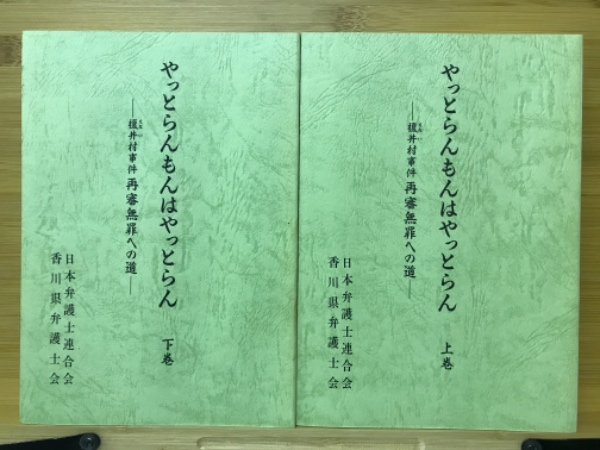 やっとらんもんはやっとらん 上巻
―榎井村事件 再審無罪への道―
日本弁護士連合会
香川県弁護士会
やっとらんもんはやっとらん 下巻
―榎井村事件 再審無罪への道―
日本弁護士連合会
香川県弁護士会